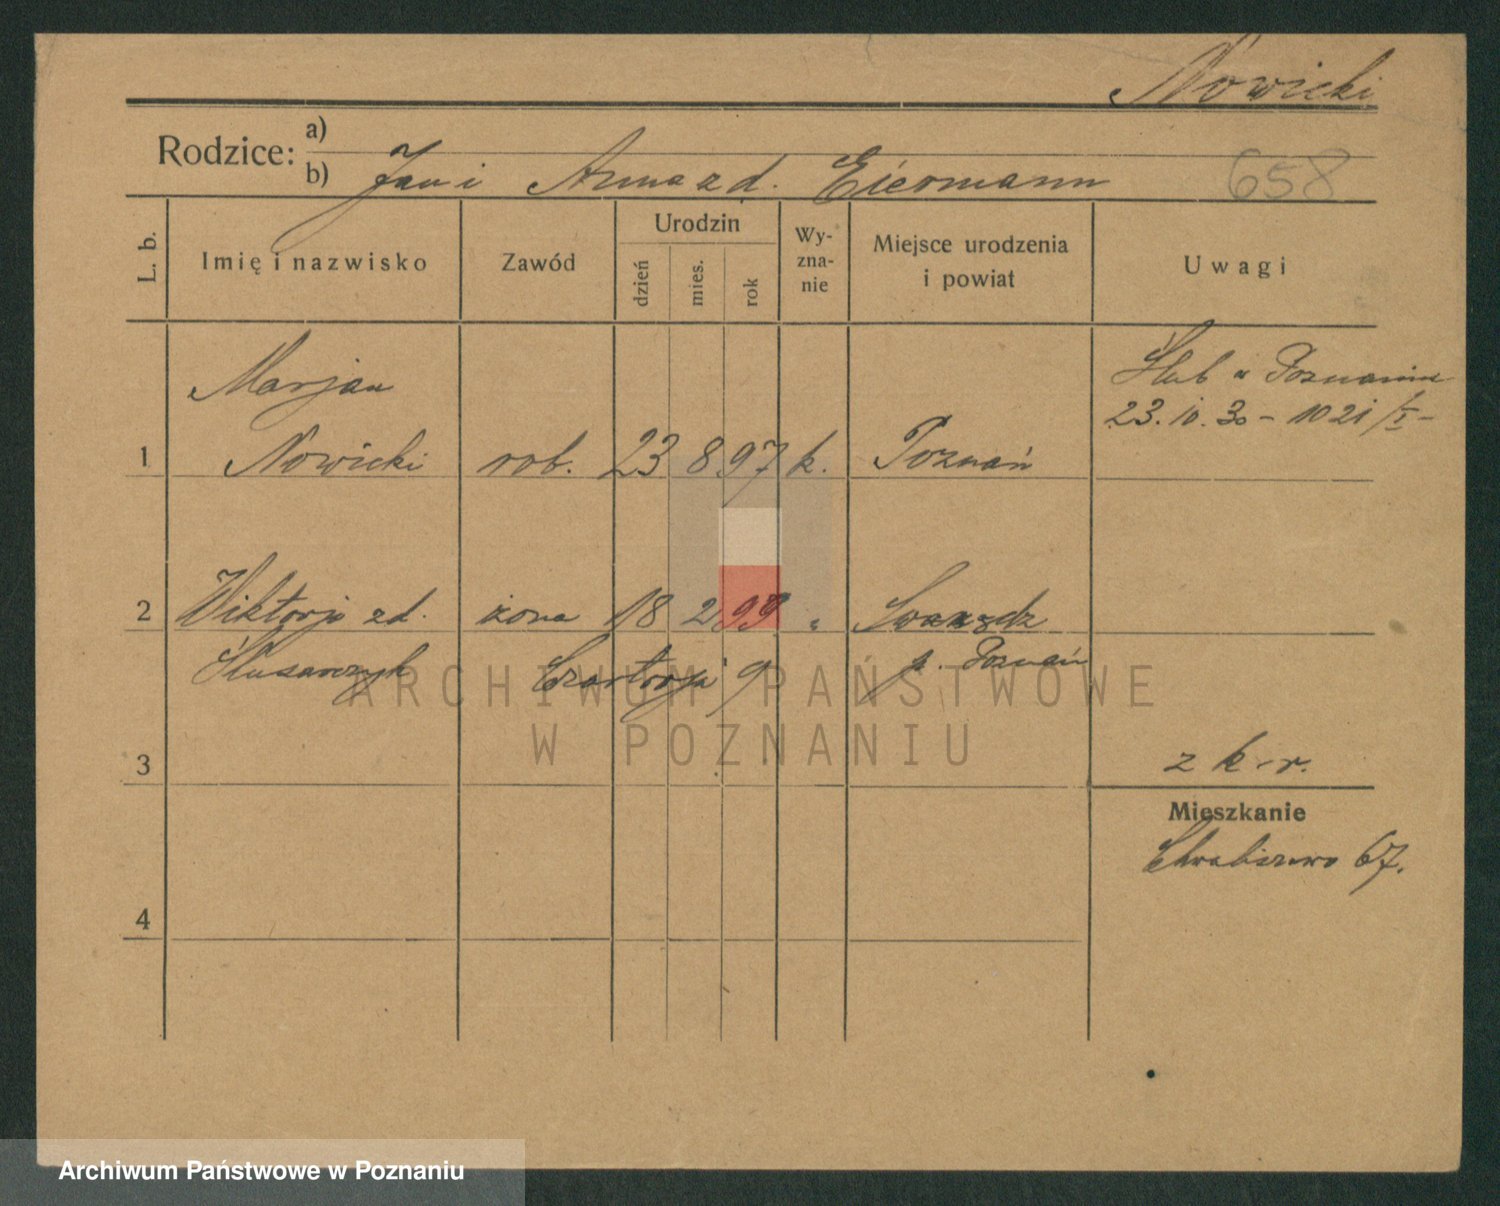 Nowicki
Rodzice: a)
b) Jan i Anna z d. Eiermann
658
L. b. Imię i nazwisko Zawód Urodzin dzień mies. rok Wy-zna-nie Miejsce urodzenia i powiat Uwagi
Marjan
Ślub w Poznaniu
23. 10. 30 – 1021/I –
1 Nowicki rob. 23 8 97 k. Poznań
2 Wiktorja zd. żona 18 2 99 " Swarzędz
Ślusarczyk Czartorja 9 p. Poznań
ARCHIWUM PAŃSTWOWE
W POZNANIU
3 z k. r.
Mieszkanie
Chwaliszewo 67.
4
Archiwum Państwowe w Poznaniu